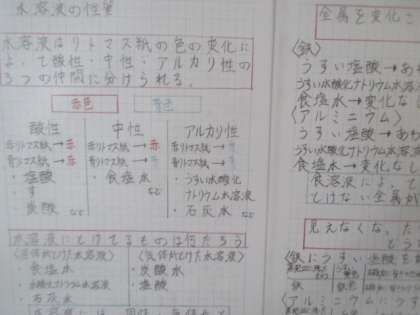 水溶液の性質
水溶液はリトマス紙の色の変化に
よって酸性・中性・アルカリ性の
3つの仲間に分けられる。
赤色
青色
酸性
赤リトマス紙→赤
青リトマス紙→赤
・塩酸
す
炭酸 など
中性
赤リトマス紙→赤
青リトマス紙→青
・食塩水
など
アルカリ性
赤リトマス紙→青
青リトマス紙→青
・うすい水酸化
ナトリウム水溶液
・石灰水 など
水溶液にとけてるものは何だろう
(固体がとけた水溶液)
・食塩水
・水酸化ナトリウム水溶液
・石灰水
(気体がとけた水溶液)
・炭酸水
・塩酸
金属を変化
〈鉄〉
うすい塩酸→あ
うすい水酸化ナトリウム水溶
食塩水→変化な
〈アルミニウム〉
うすい塩酸→あ
うすい水酸化ナトリウム水溶
食塩水→変化なし
水溶液によ
とけない金属が
見えなくな
〈鉄にうすい塩酸を
鉄
銀色
〈アルミニウムにうす